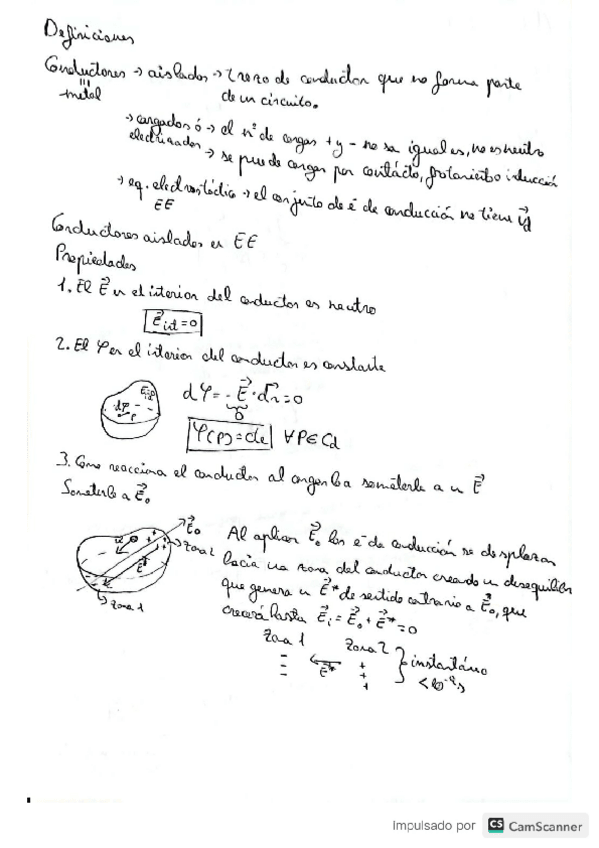 Definiciones
Conductores → aislados → trozo de conductor que no forma parte
metal
de un circuito.
→ cargados ó → el nº de cargas + y - no sa iguales, no es neutro
electrizados → se puede cargar por contácto, frotamiento inducción
→ eq. electrostático → el conjunto de ē de conducción no tienen
EE
Conductores aislados en EE
Propiedades
1. El E⃗ en el interior del conductor es neutro
E⃗int = 0
2. El φ en el interior del conductor es constante
dφ = - E⃗ · dr⃗ = 0
0
φ(P) = cte ∀P∈Cd
3. Como reacciona el conductor al cargarlo a someterle a un E⃗
Someterlo a E⃗₀
E⃗₀
zona 2
E⃗*
zona 1
Al aplicar E⃗₀ los ē de conducción se desplazan
hacia una zona del conductor creando un desequilibr
que genera un E⃗* de sentido contrario a E⃗₀, que
crecerá hasta E⃗ᵢ = E⃗₀ + E⃗* = 0
Zona 1 Zona 2
- - - E⃗* + + + } instantáneo
Impulsado por CS CamScanner